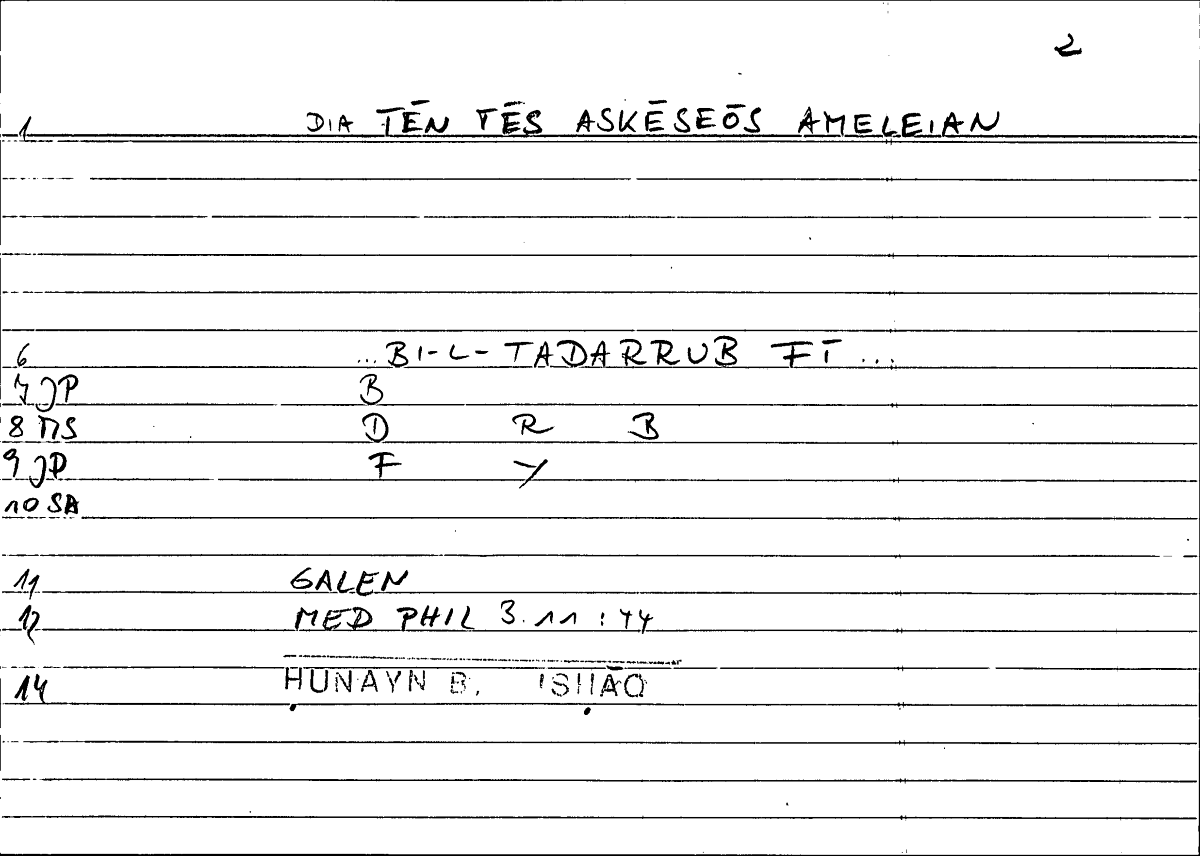 2
1 DIA TĒN TĒS ASKĒSEŌS AMELEIAN
6 ...BI-L-TADARRUB FĪ...
7 JP B
8 MS D R B
9 JP F Y
10 SA
11 GALEN
12 MED PHIL 3.11 : 44
14 ḤUNAYN B. ISḤĀQ